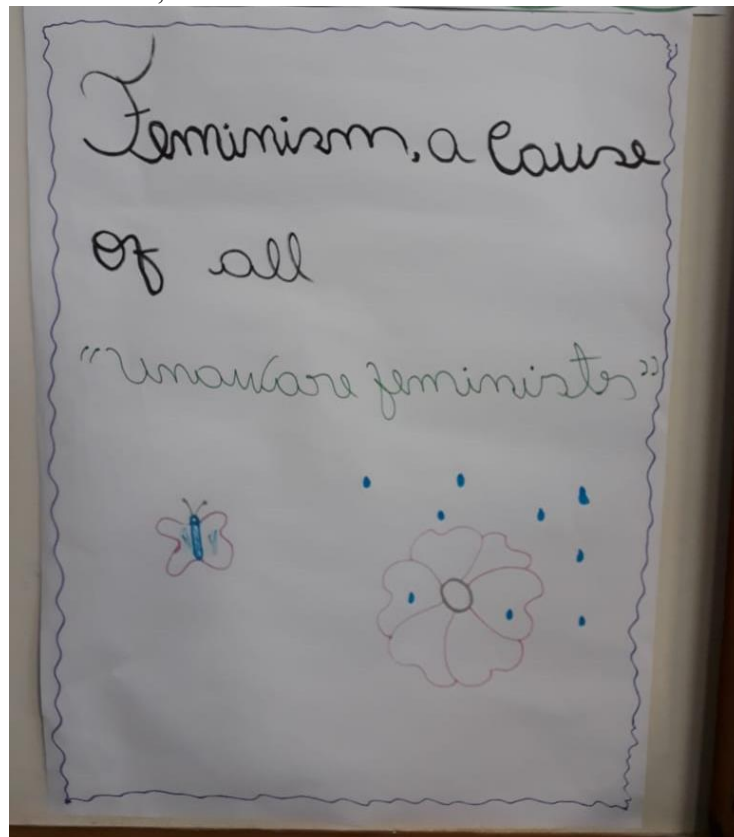 Feminism, a Cause
of all
"unaware feminists"